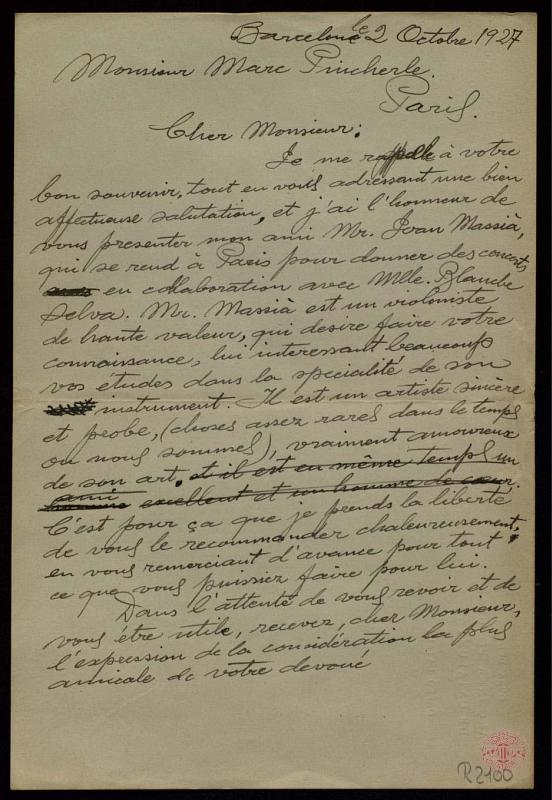 Barcelone le 2 Octobre 1927
Monsieur Marc Pincherle.
Paris.
Cher Monsieur:
Je me rappelle à votre
bon souvenir, tout en vous adressant une bien
affectueuse salutation, et j'ai l'honneur de
vous presenter mon ami Mr. Joan Massià,
qui se rend à Paris pour donner des concerts
en collaboration avec Mlle. Blanche
Selva. Mr. Massià est un violoniste
de haute valeur, qui desire faire votre
connaissance, lui interessant beaucoup
vos études dans la specialité de son
instrument. Il est un artiste sincère
et probe, (choses assez rares dans le temps
ou nous sommes), vraiment amoureux
de son art. et il est en même temps un
ami excellent et un homme de cœur.
C'est pour ça que je prends la liberté
de vous le recommander chaleureusement,
en vous remerciant d'avance pour tout
ce que vous puissiez faire pour lui.
Dans l'attente de vous revoir et de
vous être utile, recevez, cher Monsieur,
l'expression de la considération la plus
amicale de votre devoué
R.2100